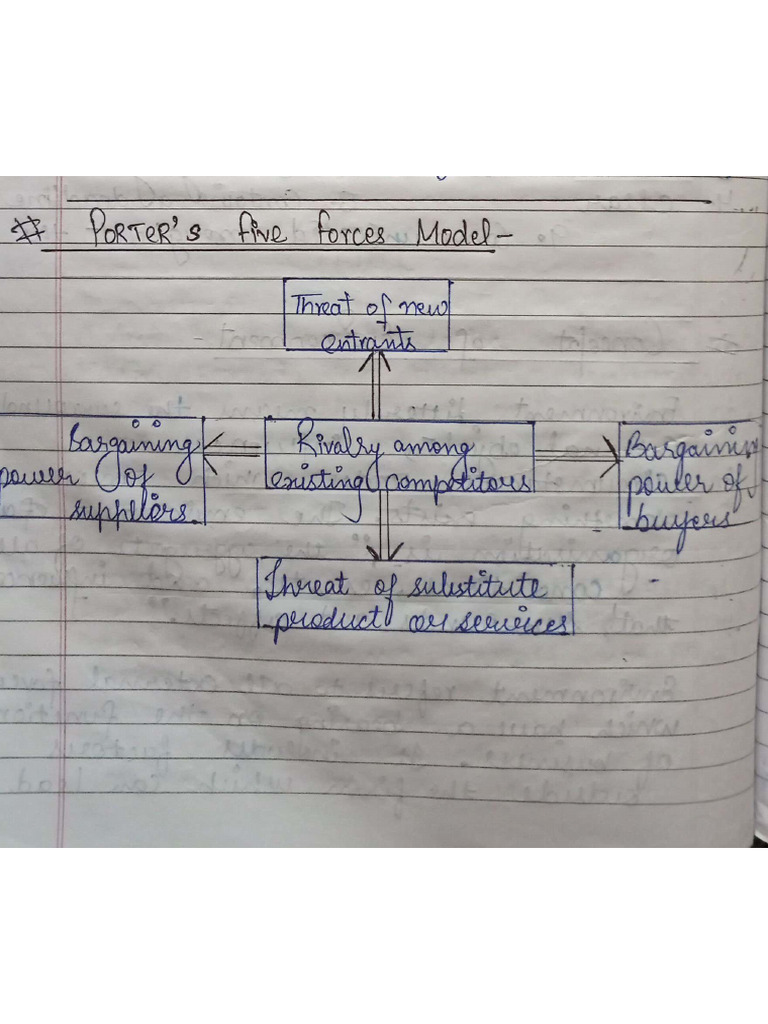 # PORTER's five forces Model -
Threat of new
entrants
Bargaining
power of
suppliers.
Rivalry among
existing competitors
Bargaining
power of
buyers
Threat of substitute
product or services